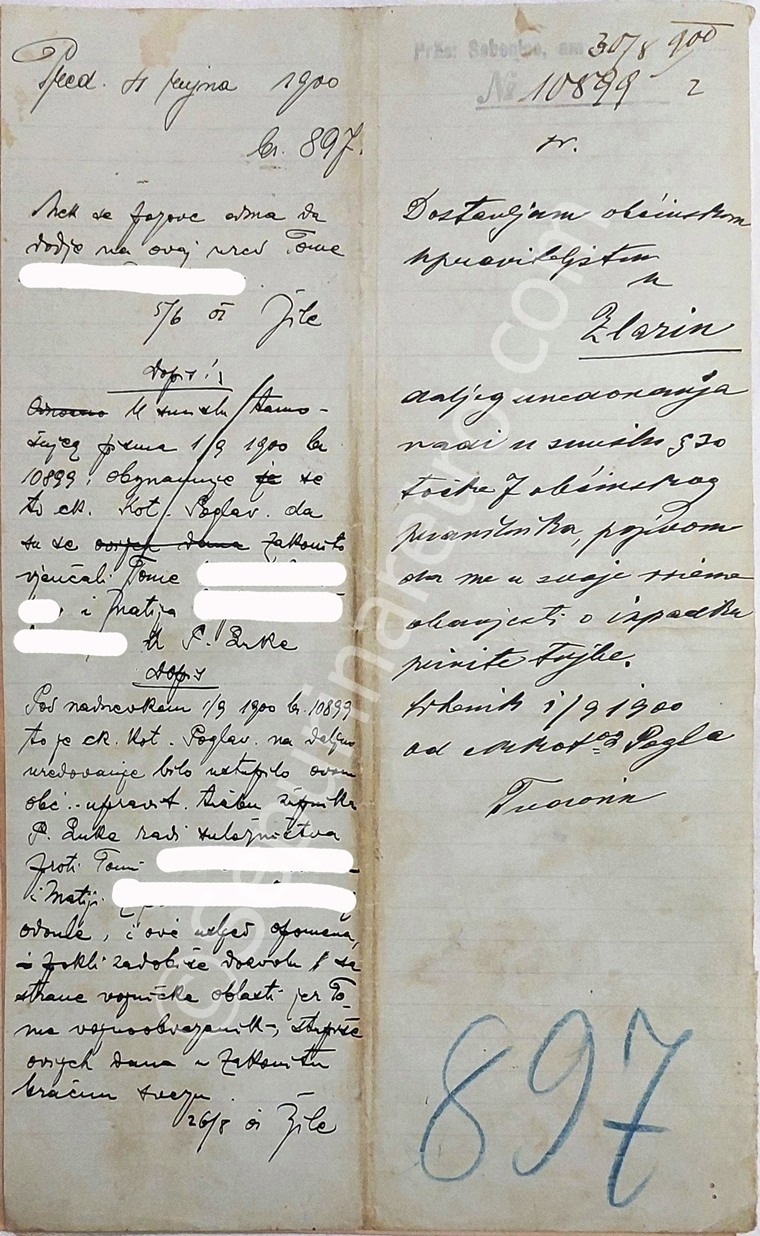 Pred. 4 rujna 1900
br. 897.
Nek se pozove odma da
dodje na ovaj ured Tome
5/6 Žile
Dopis
U smislu tamo-
šnjeg pisma 1/9 1900 br
10899; obznanjuje se
to ck. Kot. Poglav. da
su se ovijeh dana zakonito
vjenčali Tome
i Matija
U P. Zuke
Dopis
Pod nadnevkom 1/9 1900 br. 10899
to je ck. Kot. Poglav. na daljno
uredovanje bilo ustupilo ovom
obć. upravit. tužbu župnika
P. Zuka radi suložničtva
proti Tomi
i Matiji
odonle, i ove usljed opomena,
i pokli zadobiše dozvolu sa
strane vojničke oblasti jer To-
ma vojnoobvezanik, stupiše
ovijeh dana u zakonitu
bračnu svezu.
26/8 Žile
Präs: Sebenico, am 30/8 900
№ 10899 2
Dostavljam obćinskom
upraviteljstvu
u
Zlarin
daljeg uredovanja
radi u smislu § 30
točke 7 obćinskog
pravilnika, pozivom
da me u svoje vrieme
obavjesti o izpadku
priložene tužbe.
Šibenik 1/9 1900
od ck kotog Pogla
897
©Starinaretro.com